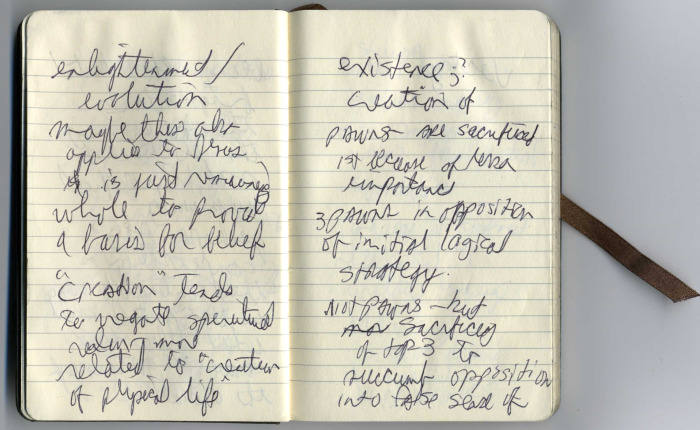 enlightenment/
evolution
maybe this also
applies to
is just
whole to
a basis for belief
"Creation" tends
to negate spiritual
more
related to "creation
of physical life"
existence;?
Creation of
pawns are sacrificed
1st because of less
importance
3 pawns in opposition
of initial logical
strategy.
Not pawns - but
sacrifices
of top 3 to
succumb opposition
into false sense of